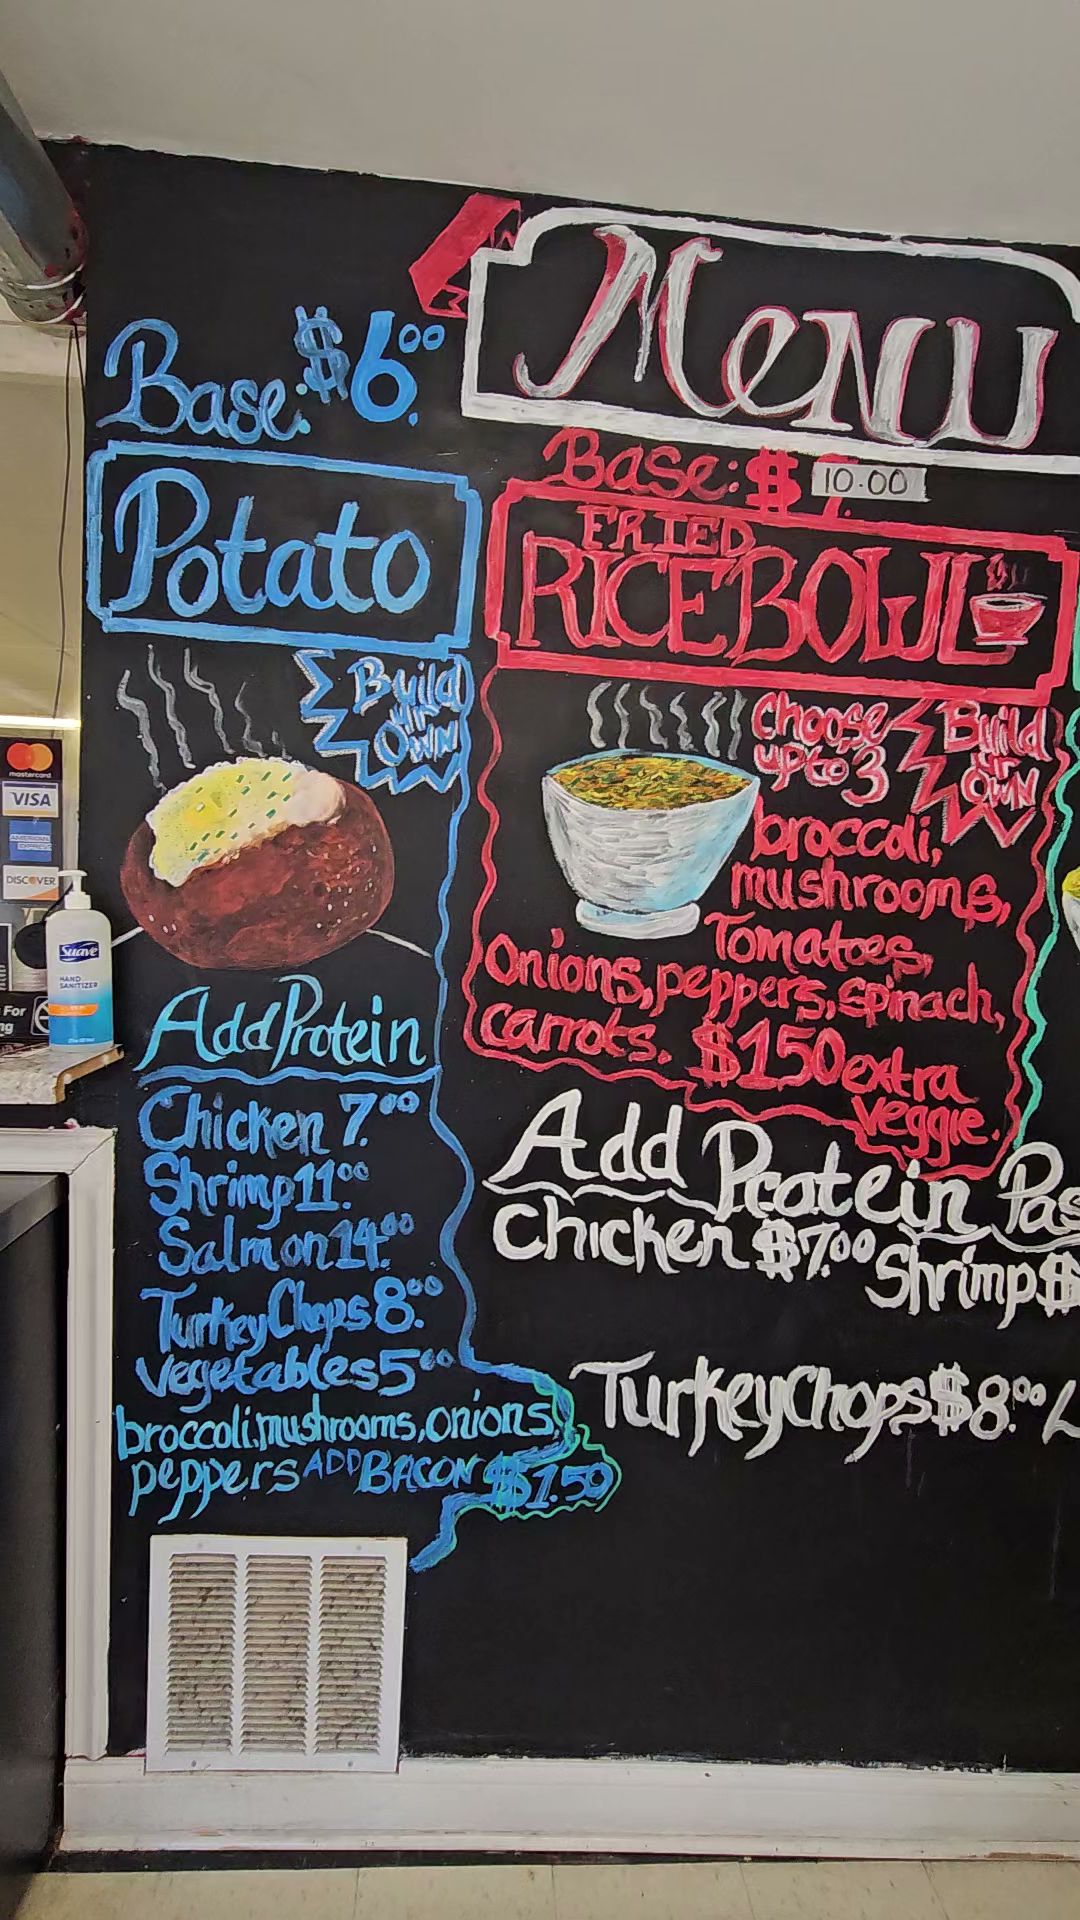 Menu
Base: $6.00
Potato
Build
Ur
Own
Add Protein
Chicken 7.00
Shrimp 11.00
Salmon 14.00
Turkey Chops 8.00
Vegetables 5.00
broccoli, mushrooms, onions,
peppers ADD BACON $1.50
Base: $ 10.00
FRIED
RICE BOWL
choose
up to 3
Build
Ur
Own
broccoli,
mushrooms,
Tomatoes,
Onions, peppers, spinach,
carrots. $1.50 extra
veggie.
Add Protein Pas
Chicken $7.00 Shrimp $
Turkey Chops $8.00 L
mastercard
VISA
AMERICAN
EXPRESS
DISCOVER
For
ng
Suave
HAND
SANITIZER